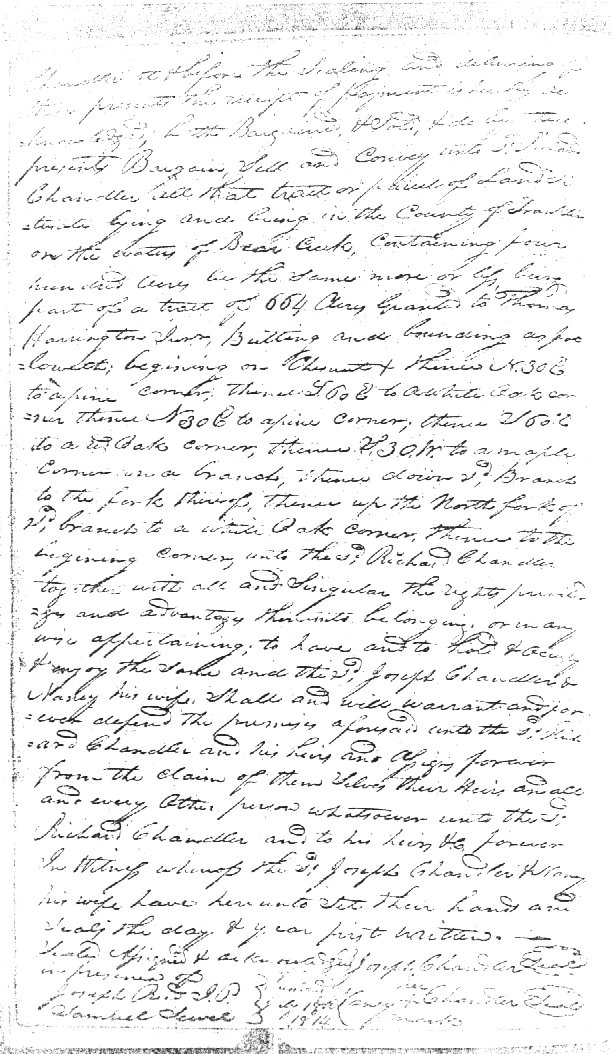 Chandler at & before the Sealing and delivering of
these presents the receipt of Payment is hereby ac
knowledg'd, hath Bargained, & Sold, & do by these
presents Bargain, Sell and Convey unto Sd. Richard
Chandler all that tract or parcel of Land Si
=tuate lying and being in the County of Franklin
on the waters of Bear Creek, Containing four
hundred Acres be the Same more or less, being
part of a tract of 664 Acres Granted to Thomas
Harrington Junr, Butting and bounding as fol
=loweth; begining on Chesnutt & thence N.30 E
to a pine corner; thence S60E to a White Oak cor
=ner thence N30E to a pine corner; thence S60E
to a W. Oak corner, thence S.30W. to a maple
Corner on a branch, thence down Sd. Branch
to the fork thereof, thence up the North fork of
Sd. branch to a white Oak corner, thence to the
begining corner, unto the Sd. Richard Chandler
together with all and Singular the rights privile
=ges and advantages thereunto belonging, or in any
wise appertaining; to have and to hold & Occupy
& enjoy the Same and the Sd. Joseph Chandler &
Nancy his wife, Shall and will warrant and for
=ever defend the premises aforesaid unto the Sd. Rich
=ard Chandler and his heirs and Assigns forever
from the claim of them Selves their Heirs and all
and every Other person whatsoever unto the Sd.
Richard Chandler and to his heirs &c forever
In Witness whereof the Sd. Joseph Chandler & Nancy
his wife have here unto Set their hands and
Seals the day & year first written.
Sealed Assigned & acknowledged Joseph Chandler Seal
in presence of
Joseph Reid J.P. Nancy her Chandler Seal
Samuel Sewel 1814 mark